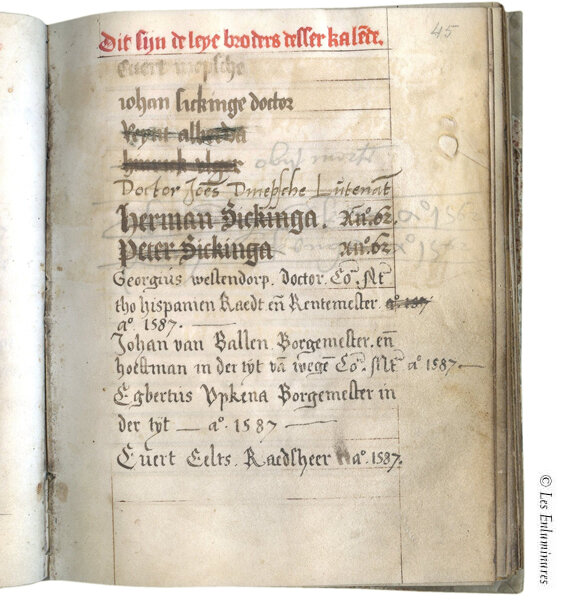 Dit sijn de leye broders desser kalēde.
45
Evert mepsche
iohan sickinge doctor
alberda
hinrick elger
obijt morte
Doctor Joēs Dmepsche Lutenāt
herman Sickinga. Anº. 62.
Peter Sickinga Anº. 62
Georgius westendorp. doctor. Co. Mt
tho hispanien Raedt eñ Rentemester. aº. 157
aº. 1587.
Johan van Ballen Borgemester. eñ
hoeftman in der tyt vā wegē Co. Mt aº 1587
Egbertus Upkena Borgemester in
der tyt — aº. 1587 —
Evert Eelts. Raedsheer aº. 1587.
© Les Enluminures